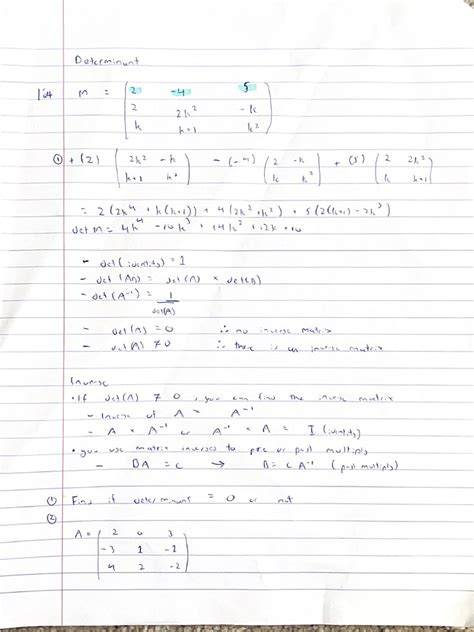 Determinant
let M = ( 2 -4 5
2 2k² -k
k k+1 k² )
① + (2) ( 2k² -k
k+1 k² ) - (-4) ( 2 -k
k k² ) + (5) ( 2 2k²
k k+1 )
= 2 (2k⁴ + k(k+1)) + 4 (2k² + k²) + 5 (2(k+1) - 2k³)
det M = 4k⁴ - 10k³ + 14k² + 12k + 10
- det (identity) = I
- det (AB) = det(A) × det(B)
- det (A⁻¹) = 1
det(A)
- det (A) = 0 ∴ no inverse matrix
- det (A) ≠ 0 ∴ there is an inverse matrix
Inverse
• If det(A) ≠ 0, you can find the inverse matrix
- Inverse of A = A⁻¹
- A × A⁻¹ or A⁻¹ × A = I (identity)
• you use matrix inverses to pre or post multiply
- BA = C → B = CA⁻¹ (post multiply)
① Find if determinant = 0 or not
②
A = ( 2 0 3
-3 1 -1
4 2 -2 )